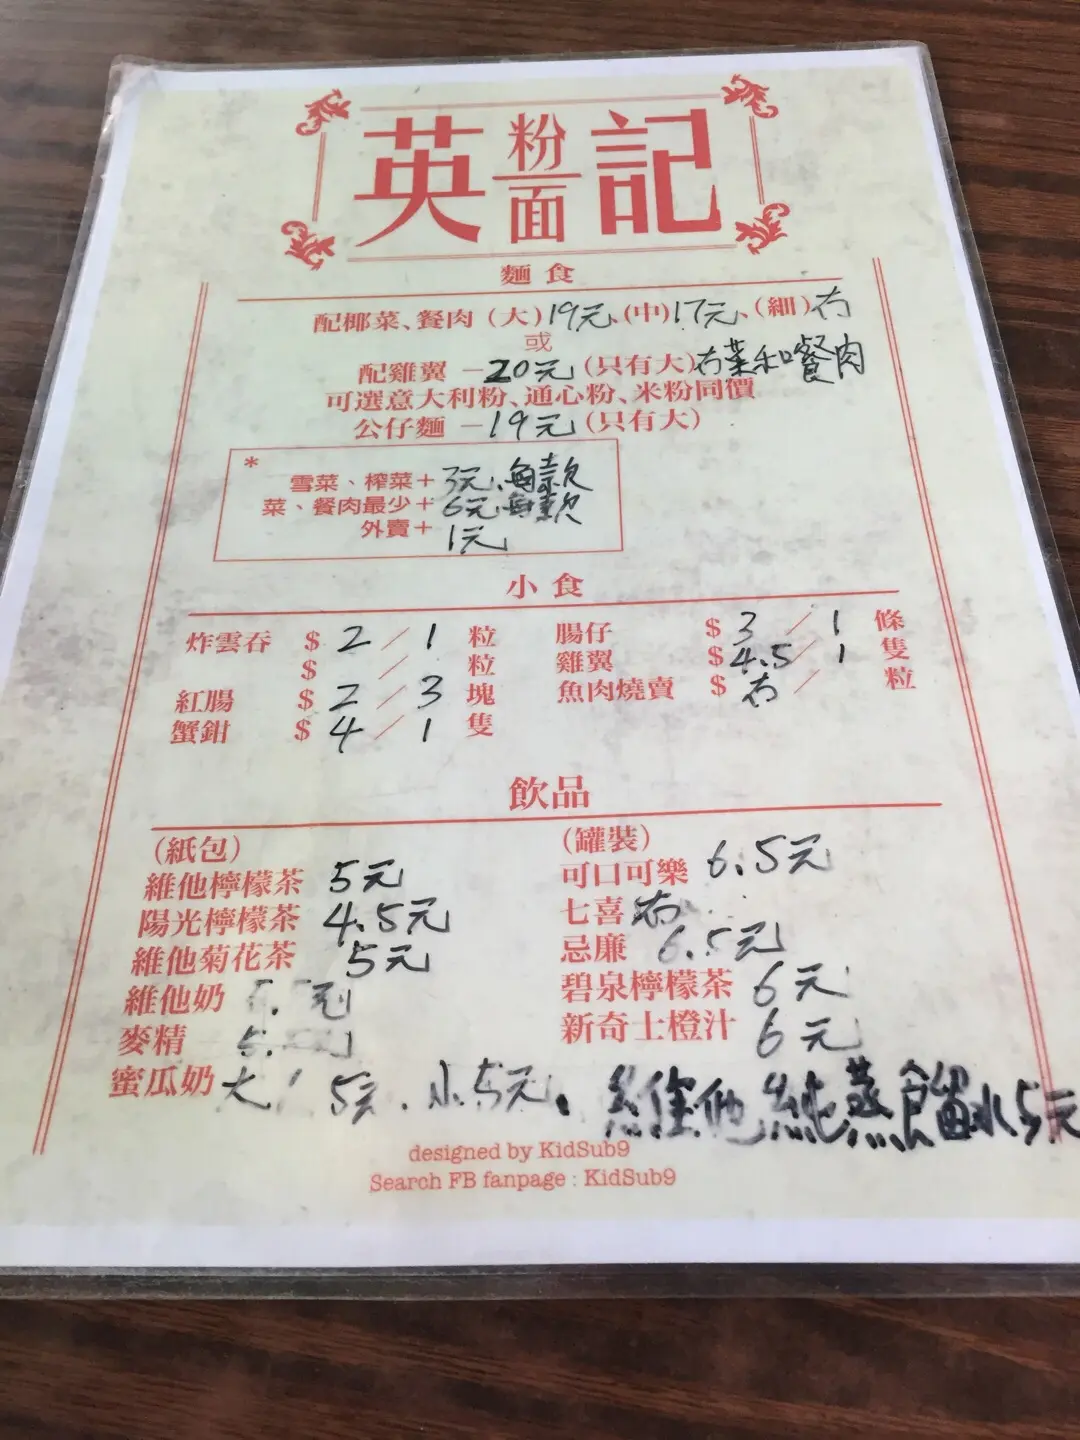 英粉面記
麵食
配椰菜、餐肉 (大)19元、(中)17元、(細)冇
或
配雞翼 -20元 (只有大)冇菜和餐肉
可選意大利粉、通心粉、米粉同價
公仔麵 -19元 (只有大)
*
雪菜、榨菜+ 3元、每款
菜、餐肉最少+ 6元 每款
外賣+ 1元
小食
炸雲吞 $ 2 / 1 粒
$ / 粒
紅腸 $ 2 / 3 塊
蟹鉗 $ 4 / 1 隻
腸仔 $ 3 / 1 條
雞翼 $ 4.5 / 1 隻
魚肉燒賣 $ 冇 / 粒
飲品
(紙包)
維他檸檬茶 5元
陽光檸檬茶 4.5元
維他菊花茶 5元
維他奶 元
麥精
蜜瓜奶 大 5元、小5元。維他純蒸餾水5元
(罐裝)
可口可樂 6.5元
七喜 冇
忌廉 6.5元
碧泉檸檬茶 6元
新奇士橙汁 6元
designed by KidSub9
Search FB fanpage : KidSub9